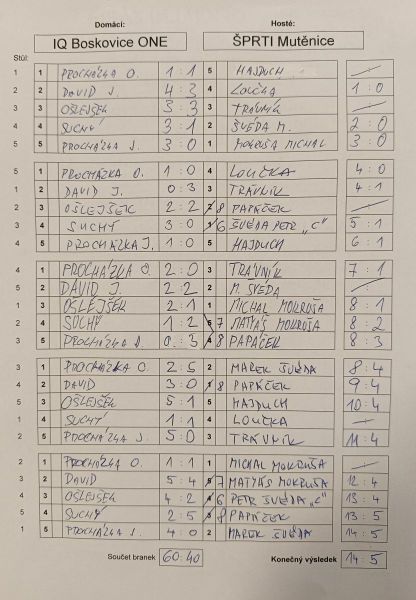 Domácí: Hosté:
IQ Boskovice ONE ŠPRTI Mutěnice
Stůl:
1 1 PROCHÁZKA O. 1 : 1 5 HAJDUCH
2 2 DAVID J. 4 : 3 4 LOUČKA 1 : 0
3 3 OŠLEJŠEK 3 : 3 3 TRÁVNÍK
4 4 SUCHÝ 3 : 1 2 ŠVÉDA M. 2 : 0
5 5 PROCHÁZKA J. 3 : 0 1 MOKRUŠA MICHAL 3 : 0
5 1 PROCHÁZKA O. 1 : 0 4 LOUČKA 4 : 0
1 2 DAVID J. 0 : 3 3 TRÁVNÍK 4 : 1
2 3 OŠLEJŠEK 2 : 2 8 PAPÁČEK
3 4 SUCHÝ 3 : 0 6 ŠVÉDA PETR "C" 5 : 1
4 5 PROCHÁZKA J. 1 : 0 5 HAJDUCH 6 : 1
4 1 PROCHÁZKA O. 2 : 0 3 TRÁVNÍK 7 : 1
5 2 DAVID J. 2 : 2 2 M. ŠVÉDA
1 3 OŠLEJŠEK 2 : 1 1 MICHAL MOKRUŠA 8 : 1
2 4 SUCHÝ 1 : 2 7 MATYÁŠ MOKRUŠA 8 : 2
3 5 PROCHÁZKA J. 0 : 3 8 PAPÁČEK 8 : 3
3 1 PROCHÁZKA O. 2 : 5 2 MAREK ŠVÉDA 8 : 4
4 2 DAVID 3 : 0 8 PAPÁČEK 9 : 4
5 3 OŠLEJŠEK 5 : 1 5 HAJDUCH 10 : 4
1 4 SUCHÝ 1 : 1 4 LOUČKA
2 5 PROCHÁZKA J. 5 : 0 3 TRÁVNÍK 11 : 4
2 1 PROCHÁZKA O. 1 : 1 1 MICHAL MOKRUŠA
3 2 DAVID 5 : 4 7 MATYÁŠ MOKRUŠA 12 : 4
4 3 OŠLEJŠEK 4 : 2 6 PETR ŠVÉDA "C" 13 : 4
5 4 SUCHÝ 2 : 5 8 PAPÁČEK 13 : 5
1 5 PROCHÁZKA J. 4 : 0 2 MAREK ŠVÉDA 14 : 5
Součet branek 60:40 Konečný výsledek 14 : 5